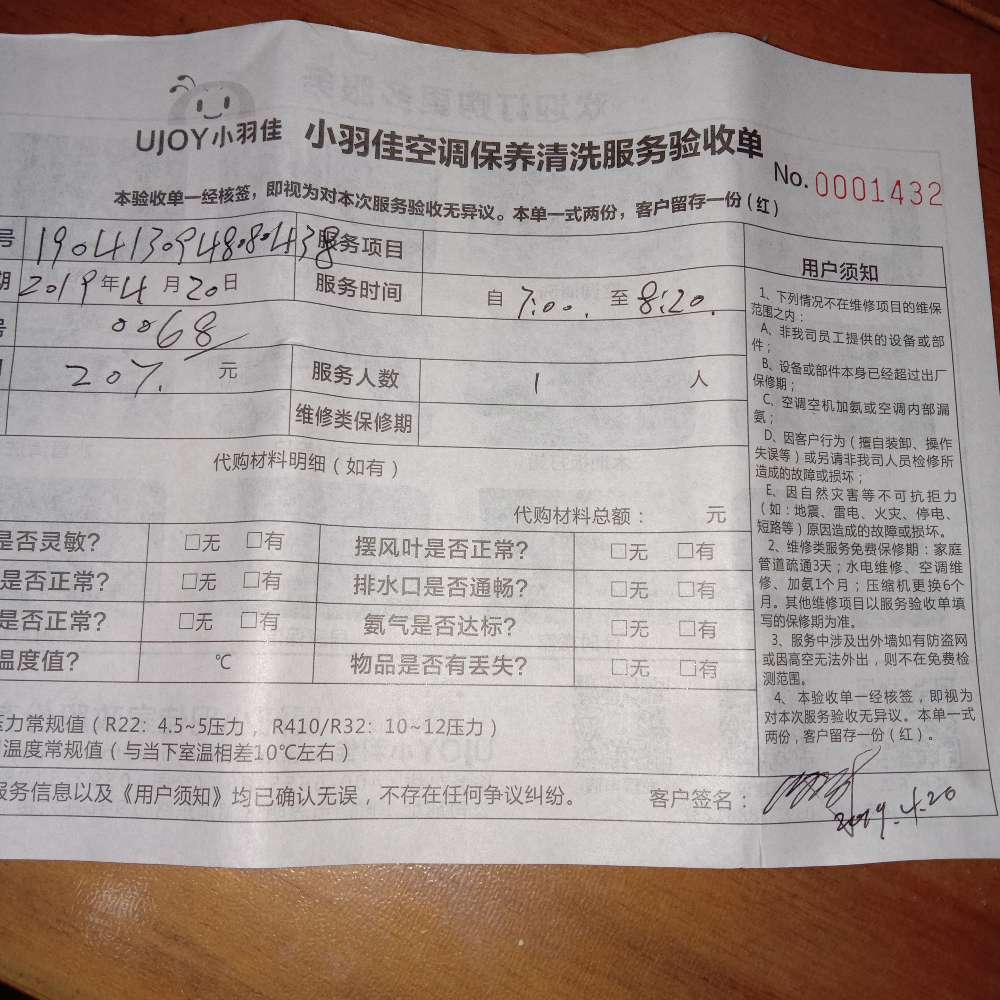 UJOY小羽佳 小羽佳空调保养清洗服务验收单
No.0001432
本验收单一经核签，即视为对本次服务验收无异议。本单一式两份，客户留存一份（红）
号 服务项目
期 2019年4月20日 服务时间 自 7:00. 至 8:20.
号 0068
207. 元 服务人数 1 人
维修类保修期
代购材料明细（如有）
代购材料总额： 元
是否灵敏? □无 □有 摆风叶是否正常? □无 □有
是否正常? □无 □有 排水口是否通畅? □无 □有
是否正常? □无 □有 氨气是否达标? □无 □有
温度值? ℃ 物品是否有丢失? □无 □有
压力常规值（R22：4.5~5压力， R410/R32：10~12压力）
温度常规值（与当下室温相差10℃左右）
服务信息以及《用户须知》均已确认无误，不存在任何争议纠纷。 客户签名：
2019.4.20
用户须知
1、下列情况不在维修项目的维保
范围之内：
A、非我司员工提供的设备或部
件；
B、设备或部件本身已经超过出厂
保修期；
C、空调空机加氨或空调内部漏
氨；
D、因客户行为（擅自装卸、操作
失误等）或另请非我司人员检修所
造成的故障或损坏；
E、因自然灾害等不可抗拒力
（如：地震、雷电、火灾、停电、
短路等）原因造成的故障或损坏。
2、维修类服务免费保修期：家庭
管道疏通3天；水电维修、空调维
修、加氨1个月；压缩机更换6个
月。其他维修项目以服务验收单填
写的保修期为准。
3、服务中涉及出外墙如有防盗网
或因高空无法外出，则不在免费检
测范围。
4、本验收单一经核签，即视为
对本次服务验收无异议。本单一式
两份，客户留存一份（红）。